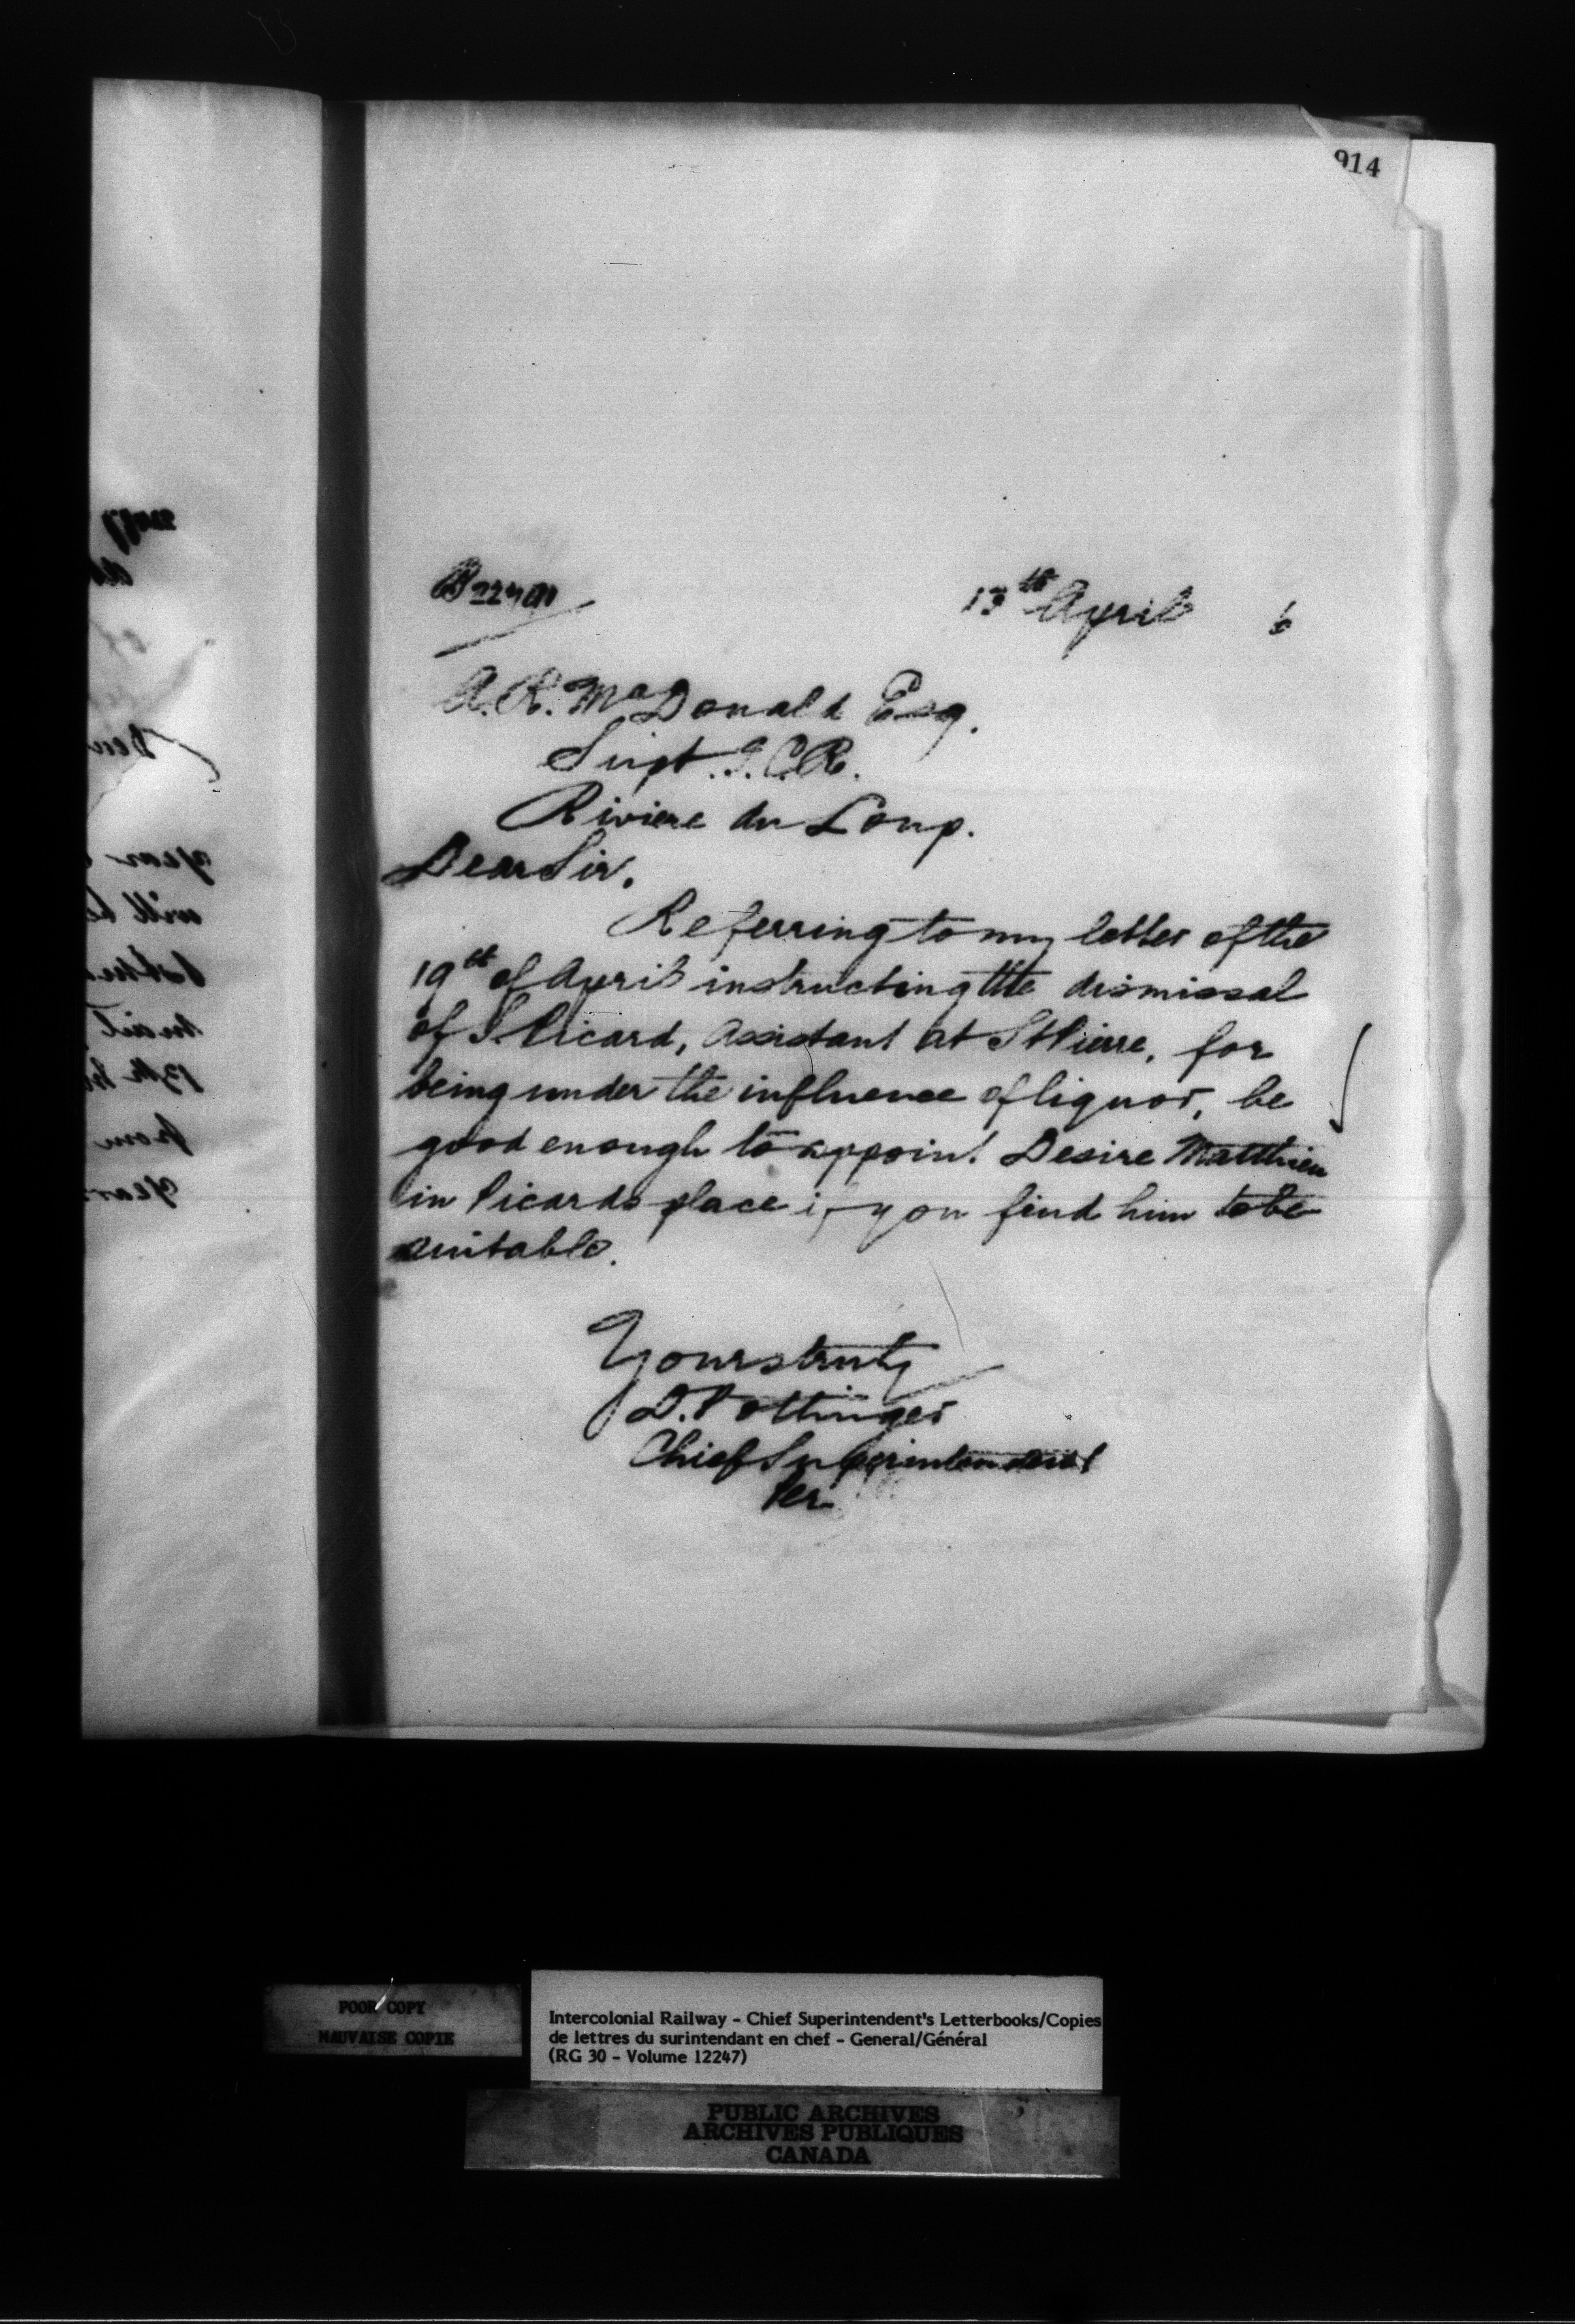 914
13th April 6
A. R. McDonald Esq.
Supt. I.C.R.
Riviere du Loup.
Dear Sir,
Referring to my letter of the
19th of April instructing the dismissal
of Picard, Assistant at St Pierre, for
being under the influence of liquor, be
good enough to appoint Desire Matthieu
in Picards place if you find him to be
suitable.
Yours truly
D. Pottinger
Chief Superintendent
Per
POOR COPY
MAUVAISE COPIE
Intercolonial Railway - Chief Superintendent's Letterbooks/Copies
de lettres du surintendant en chef - General/Général
(RG 30 - Volume 12247)
PUBLIC ARCHIVES
ARCHIVES PUBLIQUES
CANADA